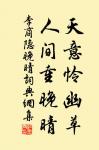 天意怜幽草
人间重晚晴
李商隐晚晴詞典網集